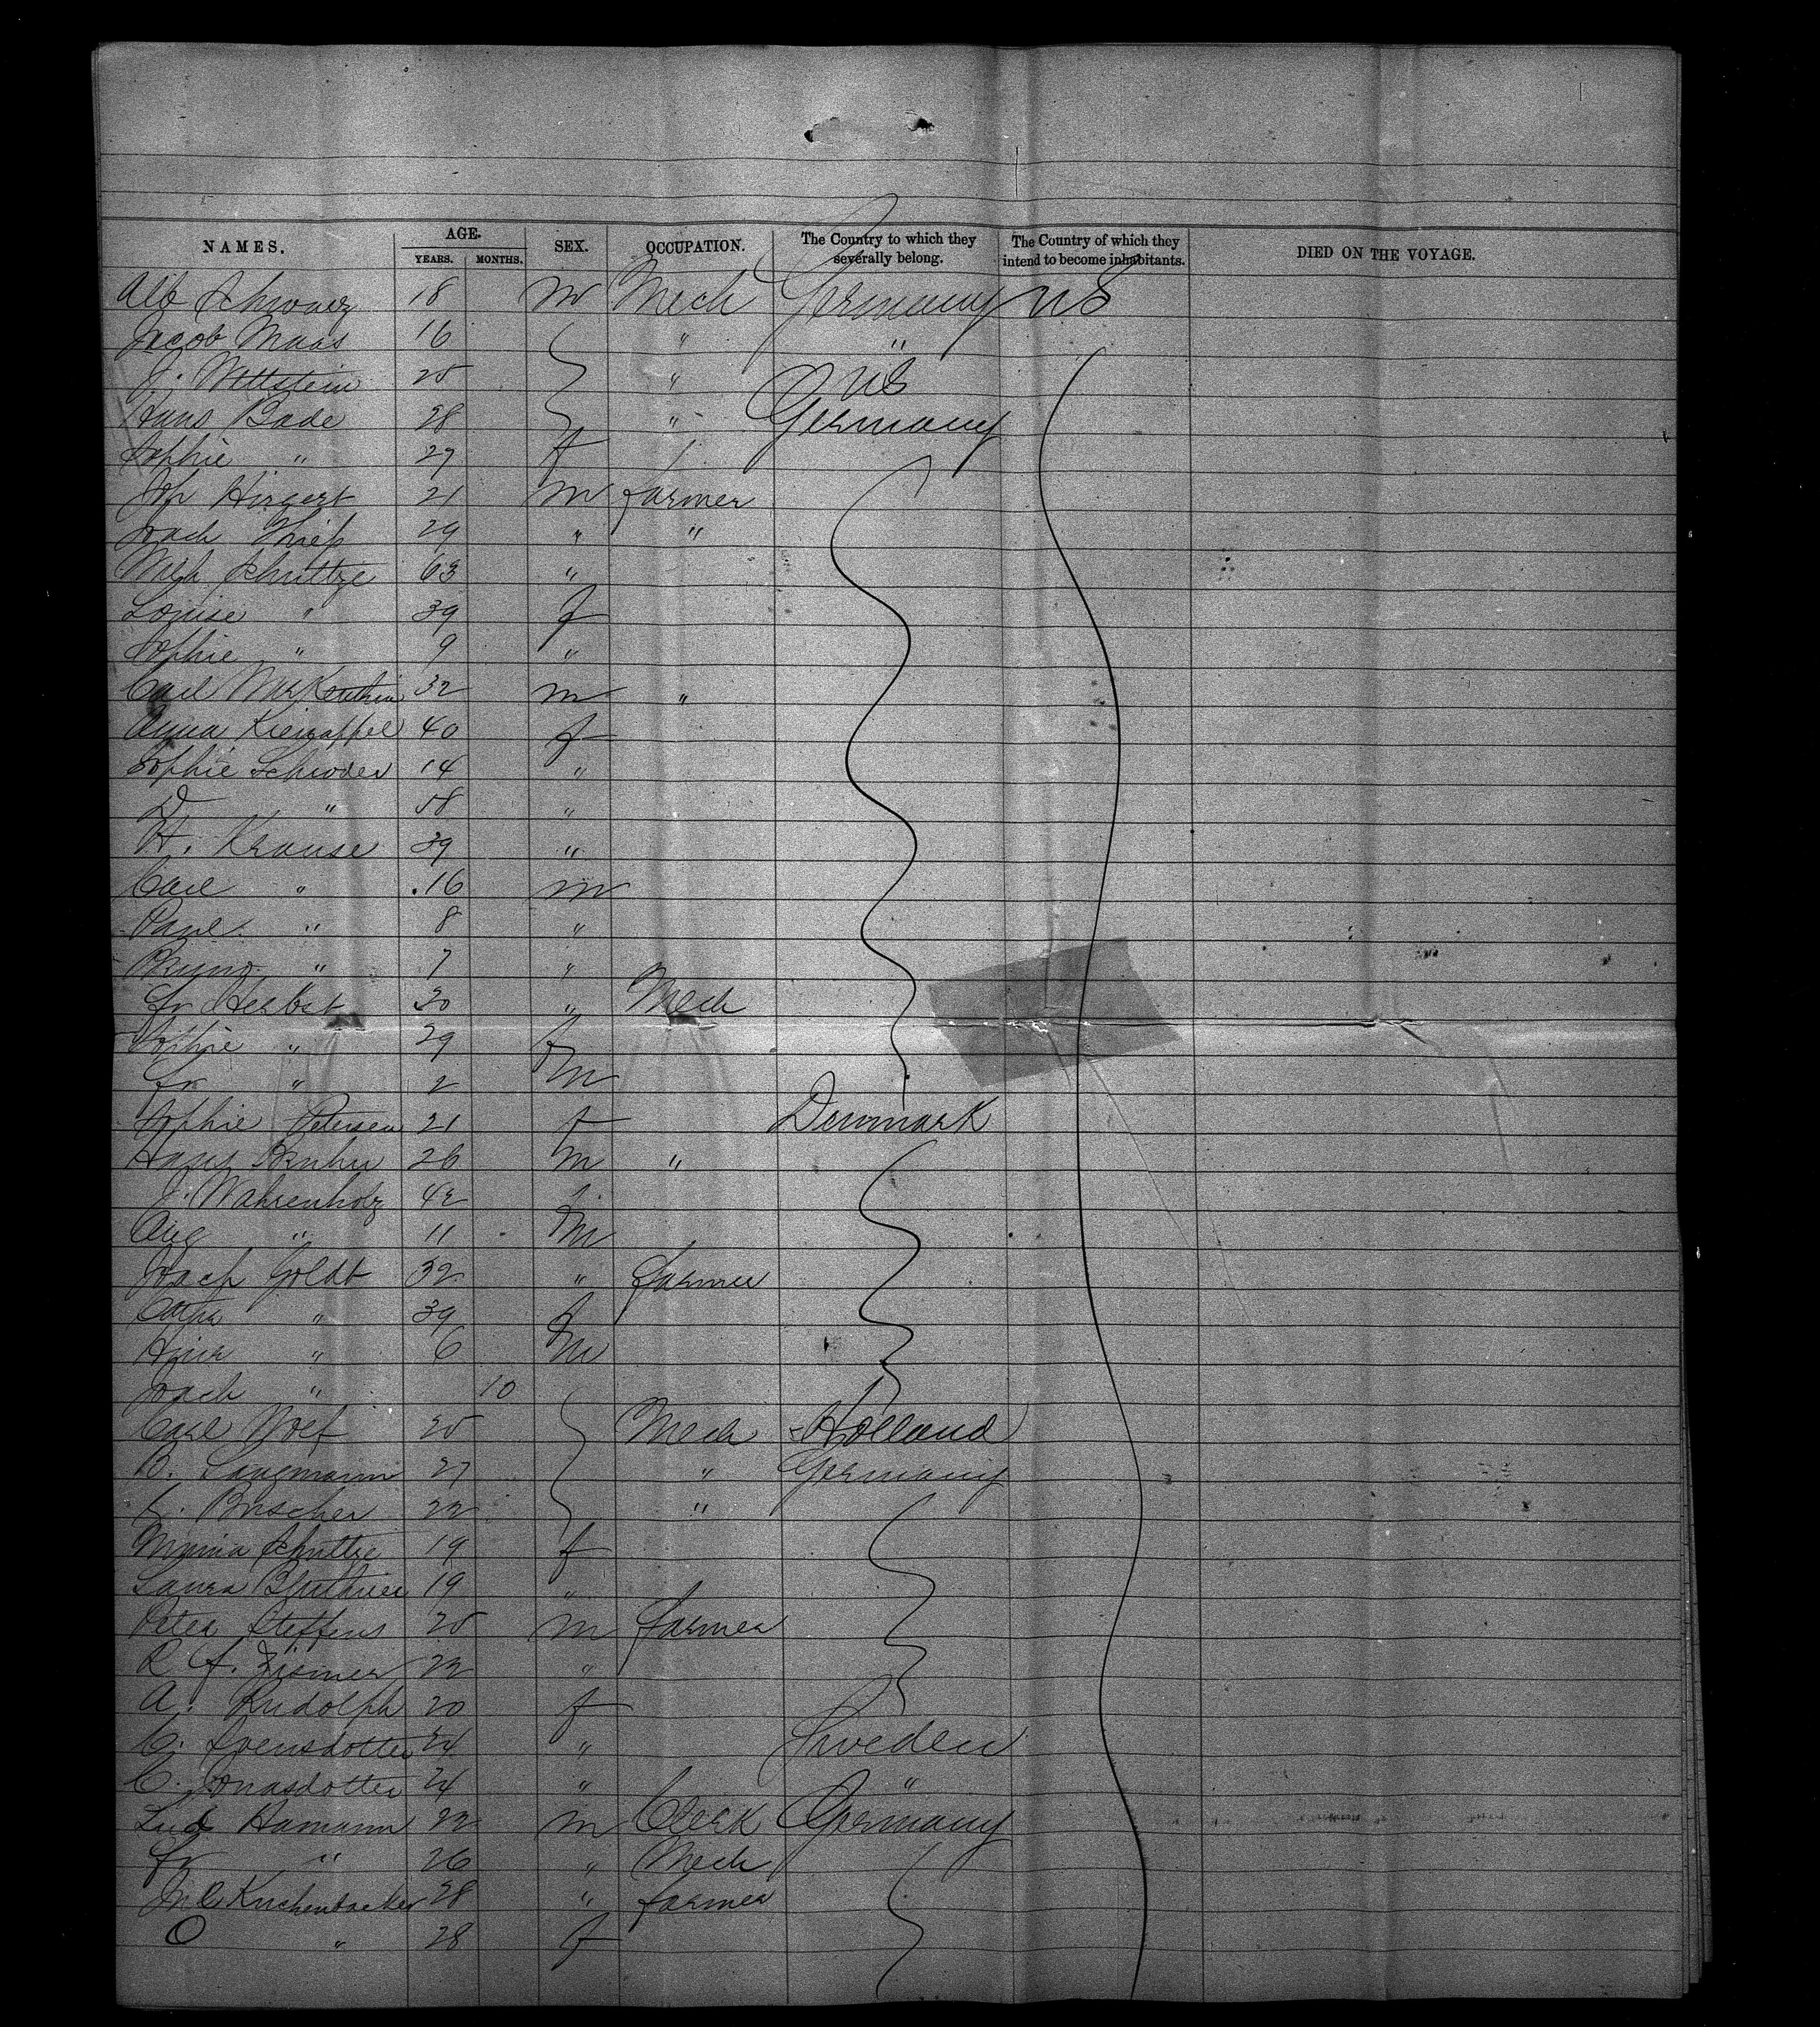 NAMES. AGE. SEX. OCCUPATION. The Country to which they severally belong. The Country of which they intend to become inhabitants. DIED ON THE VOYAGE.
YEARS. MONTHS.
Alb Schwarz 18 m Mech Germany US
Jacob Maas 16 " "
J. Wettstein 25 " US
Hans Bade 28 " Germany
Sophie " 27 f
Joh 21 m farmer
Joach Thiess 29 " "
Schultze 63 "
Louise " 39 f
Sophie " 9 "
Carl 32 m "
Anna 40 f
Sophie Schroder 14 "
D " 58 "
H. Krause 39 "
Carl " 16 m
Paul " 8 "
Bruno " 7 "
Fr Herbst 30 " Mech
Sophie " 29 f
Fr " 2 m
Sophie Petersen 21 f Denmark
Hans 26 m "
J. Wahrenholz 42 f
Aug " 11 m
Joach Goldt 32 " farmer
Catha " 39 f
" 6 m
Joach " 10
Carl Wolf 25 Mech Holland
B. Langmann 27 " Germany
Buscher 22 "
Minna Schultze 19 f
Laura Bluthner 19 "
Peter Steffens 25 m farmer
R F. Zismer 22 "
A. Rudolph 20 f
C. Svensdotter 24 " Sweden
C. Jonasdotter 24 " "
Lud Hamann 22 m Clerk Germany
Fr " 26 " Mech
Kuchenbacker 28 " farmer
O " 28 f